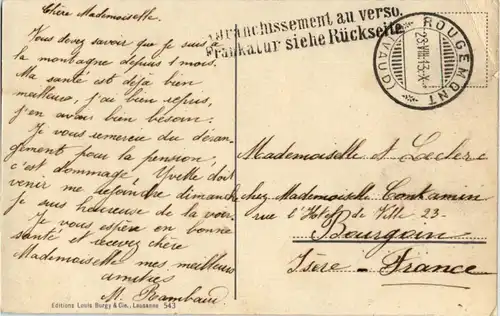 Chère Mademoiselle.
Vous devez savoir que je suis à
la montagne depuis 1 mois.
Ma santé est déjà bien
meilleure, j'ai bien repris,
j'en avais bien besoin.
Je vous remercie du déran-
gement pour la pension,
c'est dommage. Yvette doit
venir me rejoindre dimanche
je suis heureuse de la voir.
Je vous espère en bonne
santé et recevez chère
Mademoiselle mes meilleures
amitiés
M. Rambaud
Editions Louis Burgy & Cie., Lausanne 543
Affranchissement au verso.
Frankatur siehe Rückseite
ROUGEMONT
(VAUD)
Mademoiselle A. Leclerc
chez Mademoiselle Contamin
rue l'Hotel de Ville 23-
Bourgoin
Isère - France